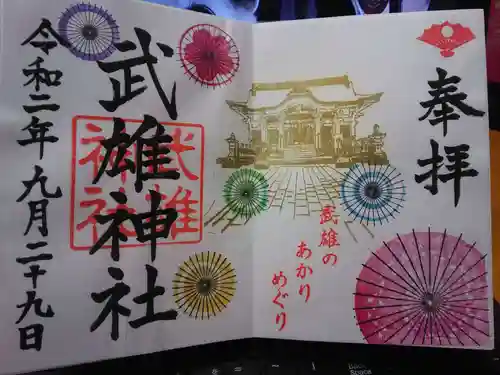 奉拝
武雄の
あかり
めぐり
武雄神社
武雄
神社
令和二年九月二十九日
Back
Space